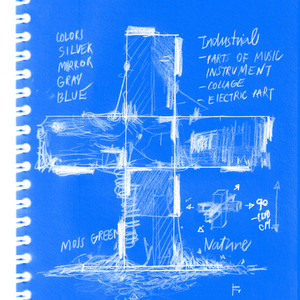 COLORS
SILVER
MIRROR
GRAY
BLUE
Industrial
- PARTS OF MUSIC
INSTRUMENT
- COLLAGE
- ELECTRIC PART
90
-100
CM
MOSS GREEN
Nature